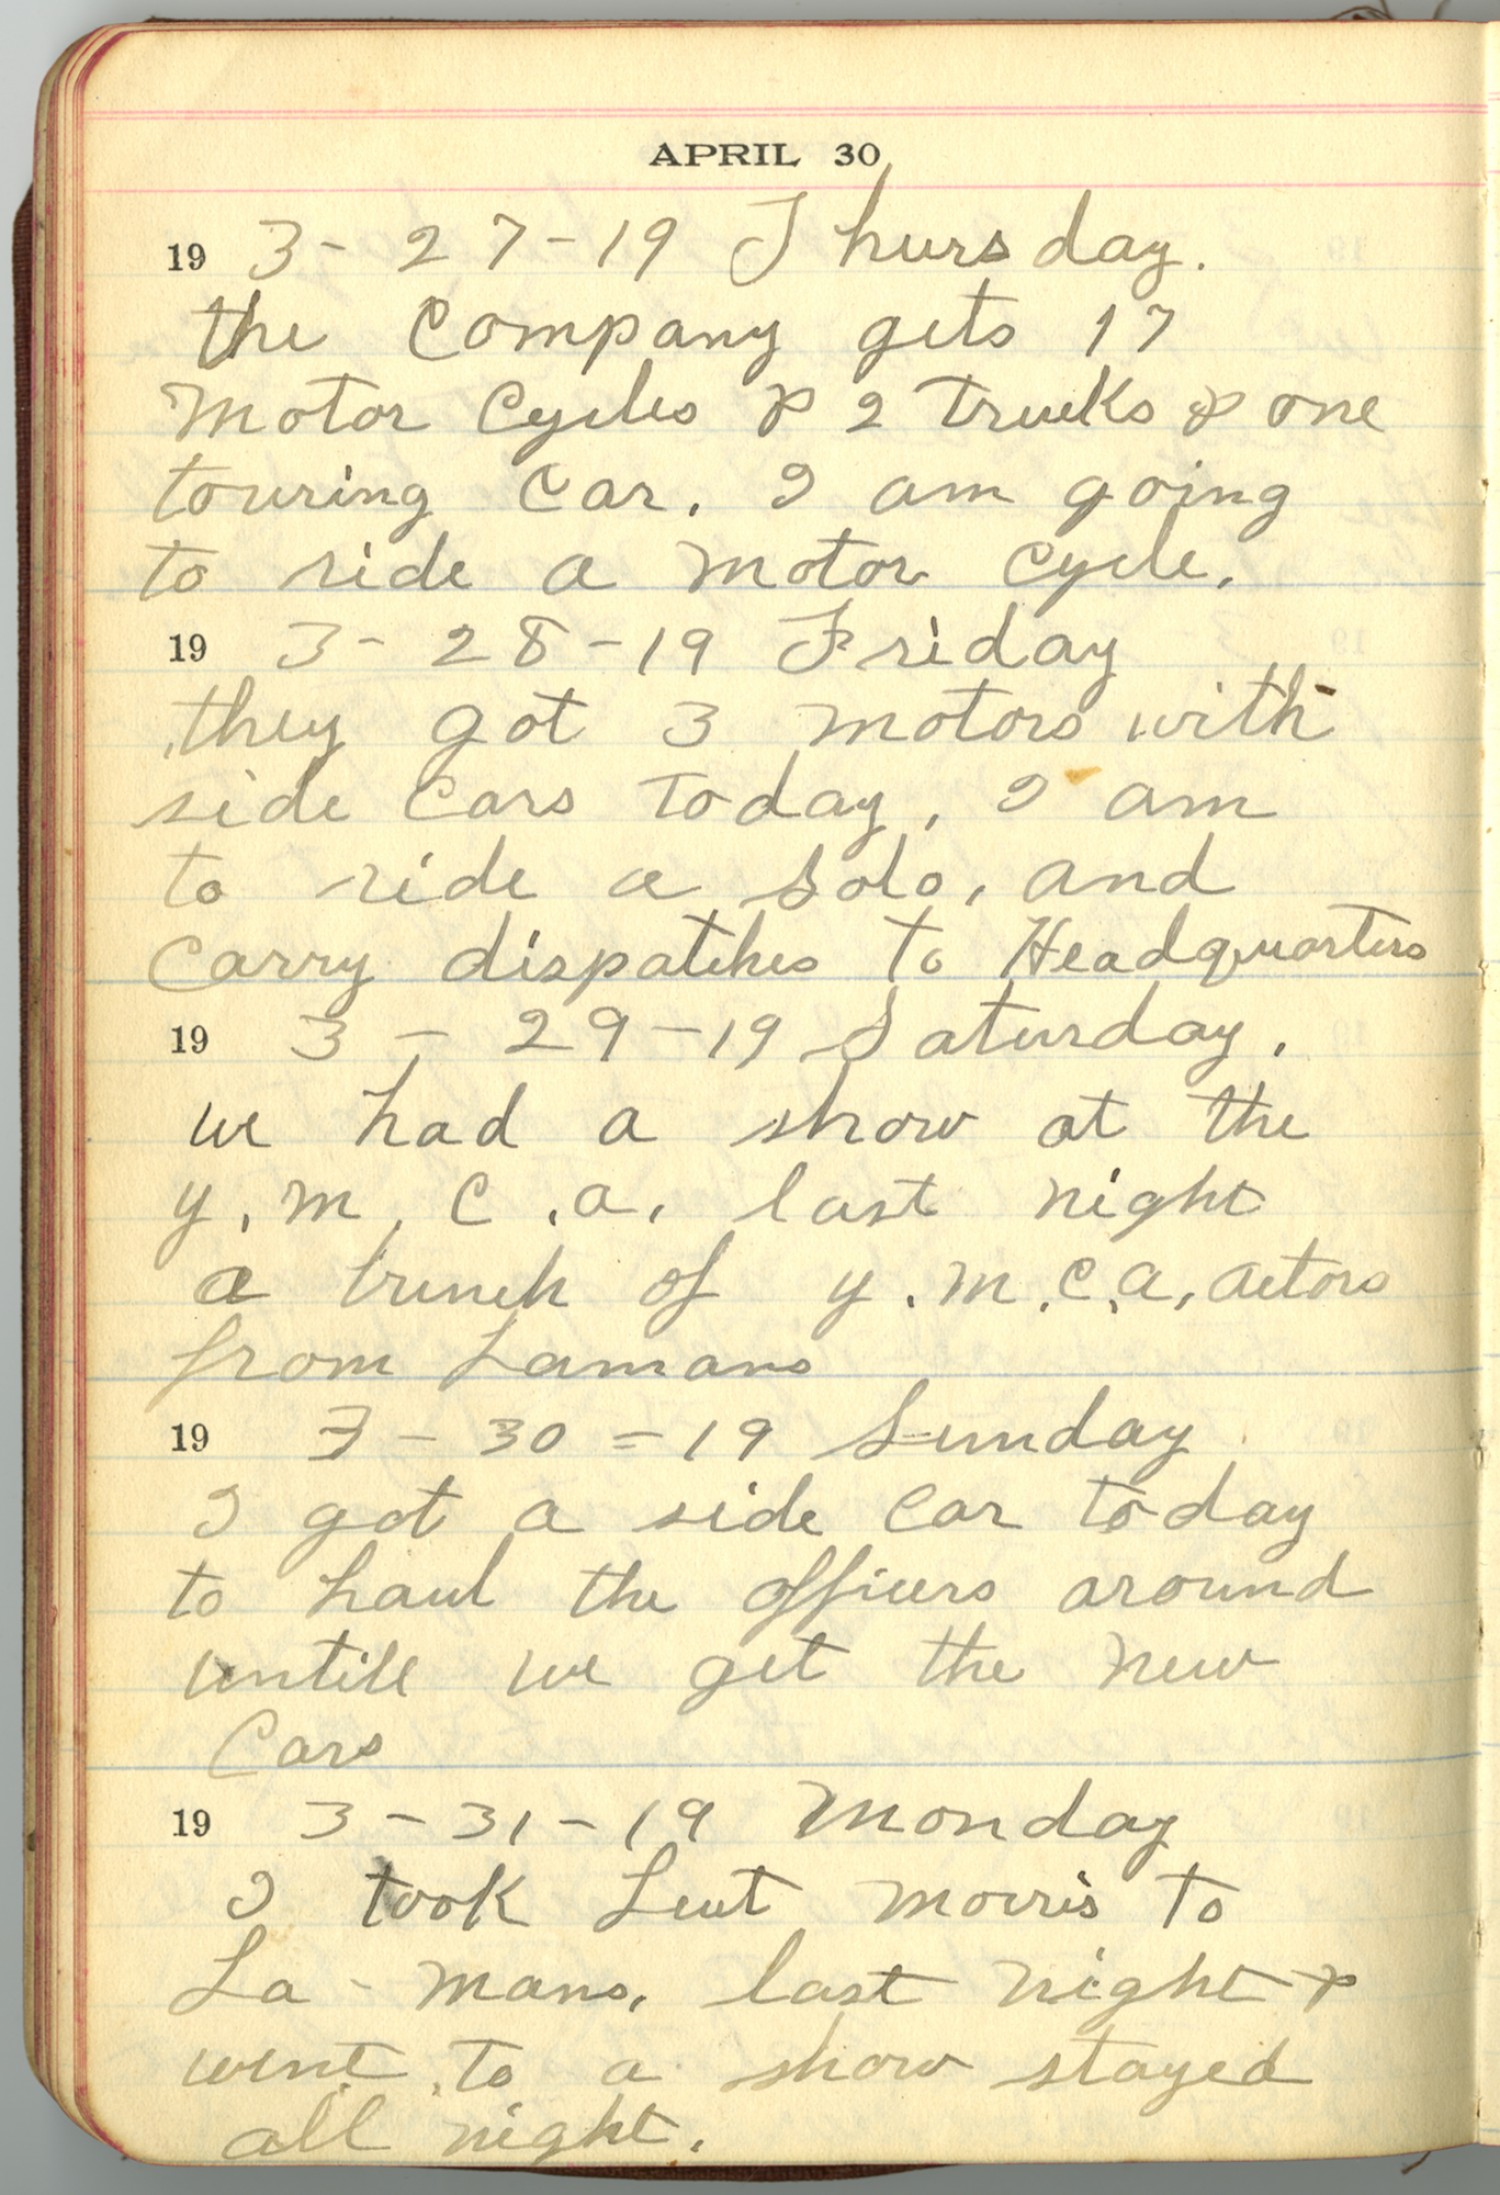 APRIL 30
19 3-27-19 Thursday.
the Company gets 17
motor Cycles & 2 trucks & one
touring Car. I am going
to ride a motor cycle.
19 3-28-19 Friday
they got 3 motors with
side cars today, I am
to ride a solo, and
carry dispatches to Headquarters
19 3-29-19 Saturday.
we had a show at the
y.m.c.a. last night
a bunch of y.m.c.a. actors
from Lamans
19 3-30=19 Sunday
I got a side car today
to haul the officers around
untill we get the new
Cars
19 3-31-19 Monday
I took Leut morris to
La-mans. last night &
went to a show stayed
all night.